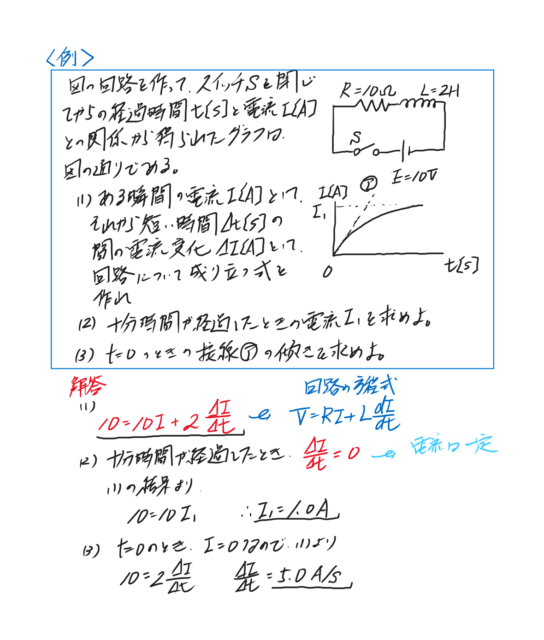 〈例〉
図の回路を作って、スイッチSを閉じ
てからの経過時間t[s]と電流I[A]
との関係から得られたグラフは、
図の通りである。
R=10Ω L=2H
S
E=10V
(1) ある瞬間の電流I[A]として、
それから短い時間Δt[s]の
間の電流変化ΔI[A]として、
回路について成り立つ式を
作れ
I[A]
I₁
①
0
t[s]
(2) 十分時間が経過したときの電流I₁を求めよ。
(3) t=0のときの接線①の傾きを求めよ。
解答
(1)
10=10I+2 ΔI/Δt
回路の方程式
V=RI+L dI/dt
(2) 十分時間が経過したとき、ΔI/Δt=0
電流は一定
(1)の結果より
10=10I₁ ∴I₁=1.0A
(3) t=0のとき、I=0なので、(1)より
10=2 ΔI/Δt ΔI/Δt=5.0A/s